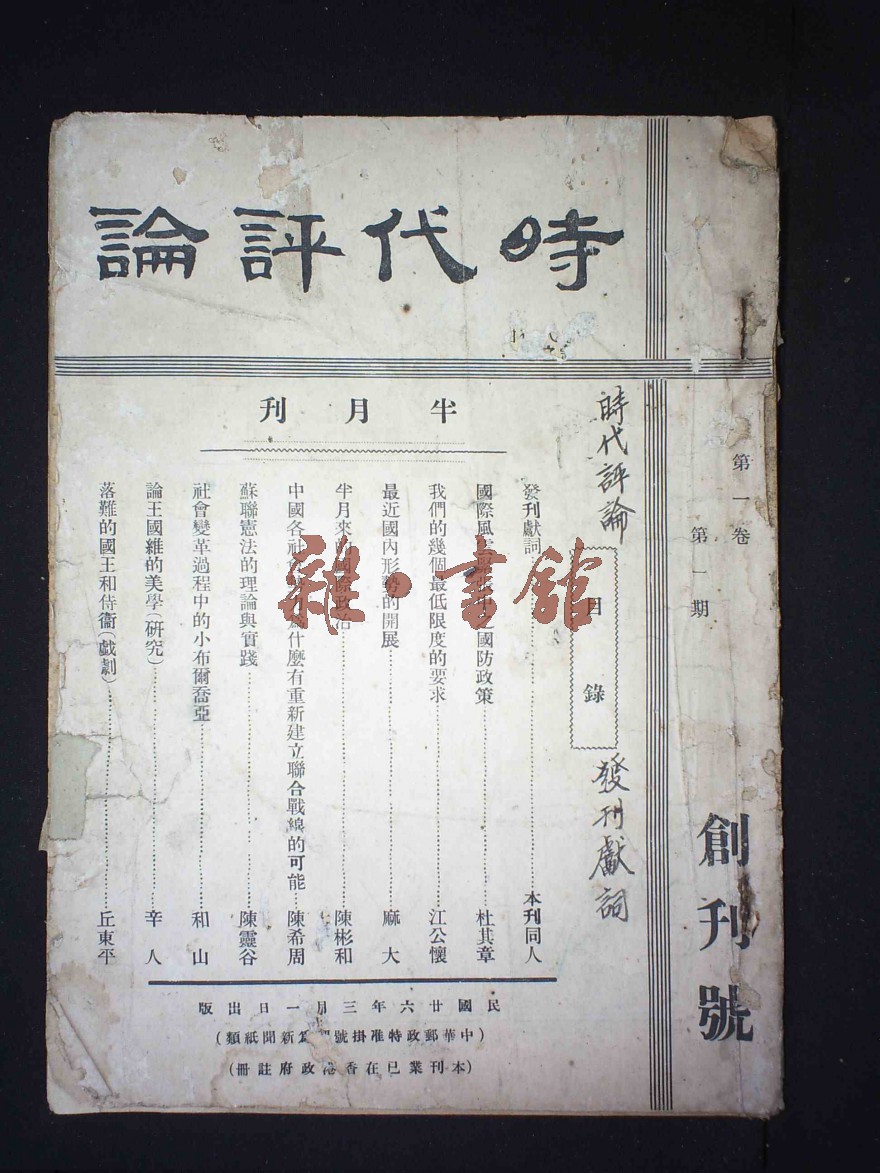 時代評論
半月刊
第一卷
第一期
創刊號
時代評論
發刊獻詞
目錄
發刊獻詞 本刊同人
國際風雲 之國防政策 杜其章
我們的幾個最低限度的要求 江公懷
最近國內形勢的開展 麻大
半月來的國際政治 陳彬和
中國各社會 為什麼有重新建立聯合戰線的可能 陳希周
蘇聯憲法的理論與實踐 陳靈谷
社會變革過程中的小布爾喬亞 和山
論王國維的美學(研究) 辛人
落難的國王和侍衞(戲劇) 丘東平
民國廿六年三月一日出版
(中華郵政特准掛號認為新聞紙類)
(本刊業已在香港政府註冊)
雜·書館